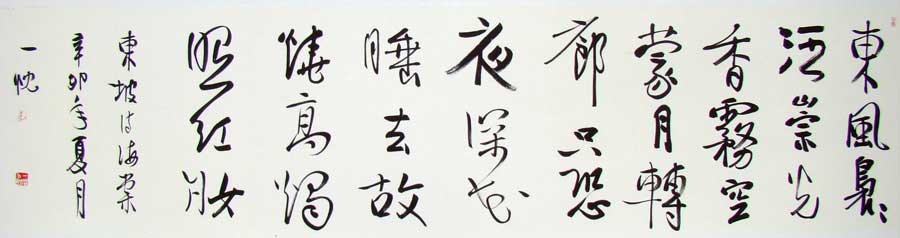 東風裊〻
泛崇光
香霧空
蒙月轉
廊只恐
夜深花
睡去故
燒高燭
照紅妝
東坡詩海棠
辛卯年夏月
一